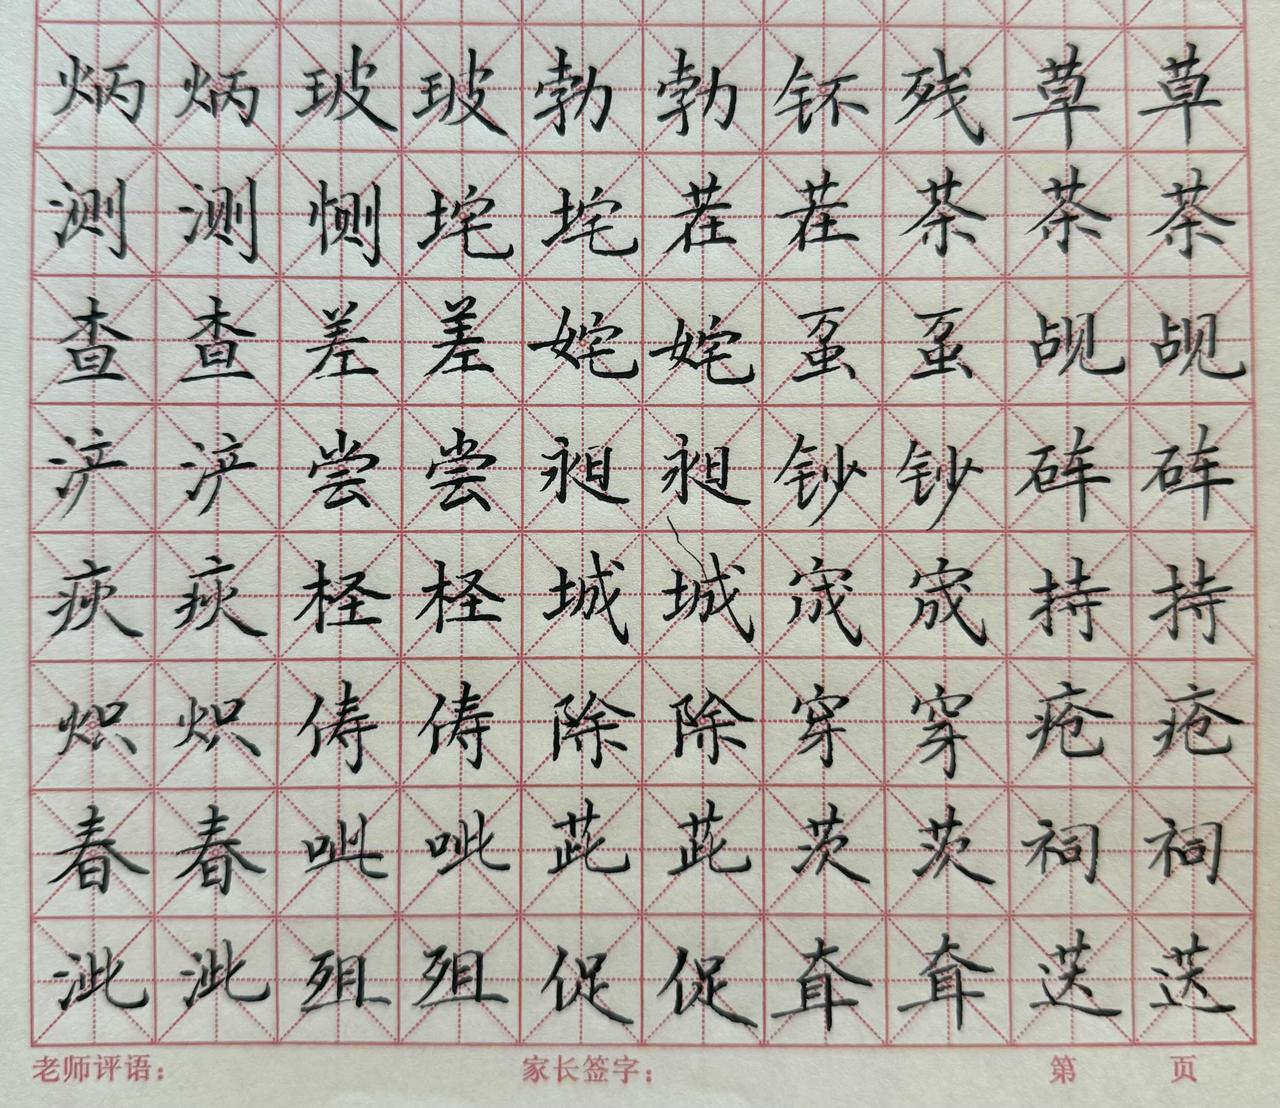 炳炳玻玻勃勃钚残草草
测测恻垞垞茬茬茶茶茶
查查差差姹姹虿虿觇觇
浐浐尝尝昶昶钞钞砗砗
疢疢柽柽城城宬宬持持
炽炽俦俦除除穿穿疮疮
春春呲呲茈茈茨茨祠祠
泚泚殂殂促促耷耷迭迭
老师评语： 家长签字： 第 页